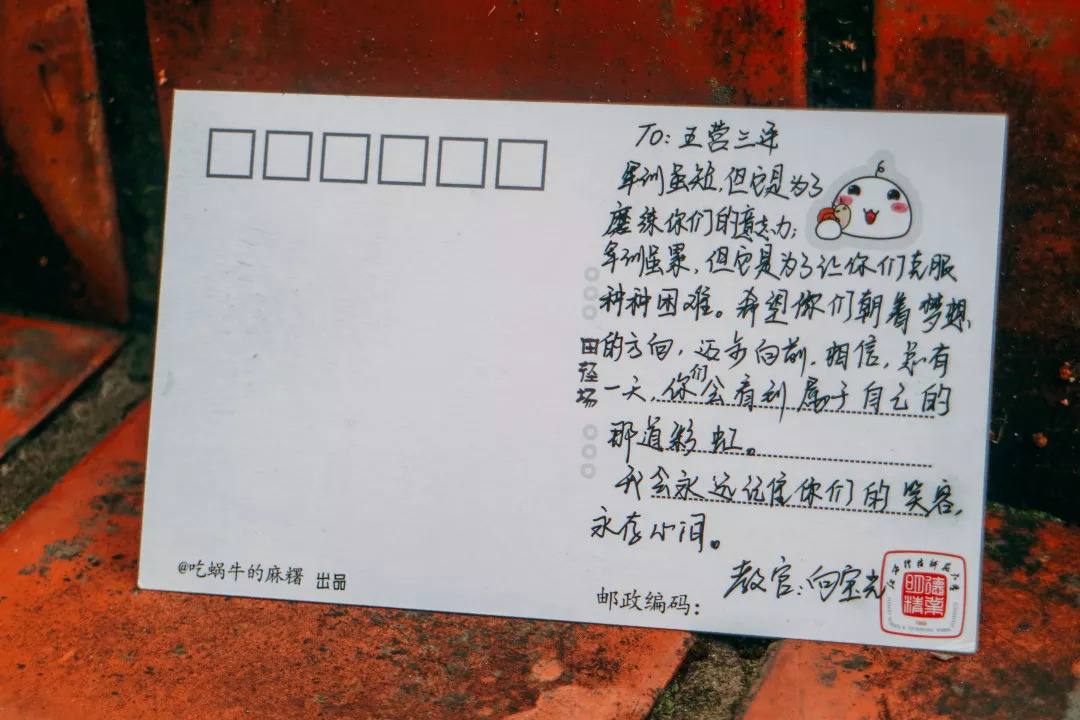 TO：五营三连
军训虽短，但它是为了
磨练你们的意志力；
军训虽累，但它是为了让你们克服
种种困难。希望你们朝着梦想
的方向，迈步向前，相信，总有
一天，你们会看到属于自己的
那道彩虹。
我会永远记住你们的笑容，
永存心间。
教官：向宝光
田径场
@吃蜗牛的麻糬 出品
邮政编码：
明德
精业